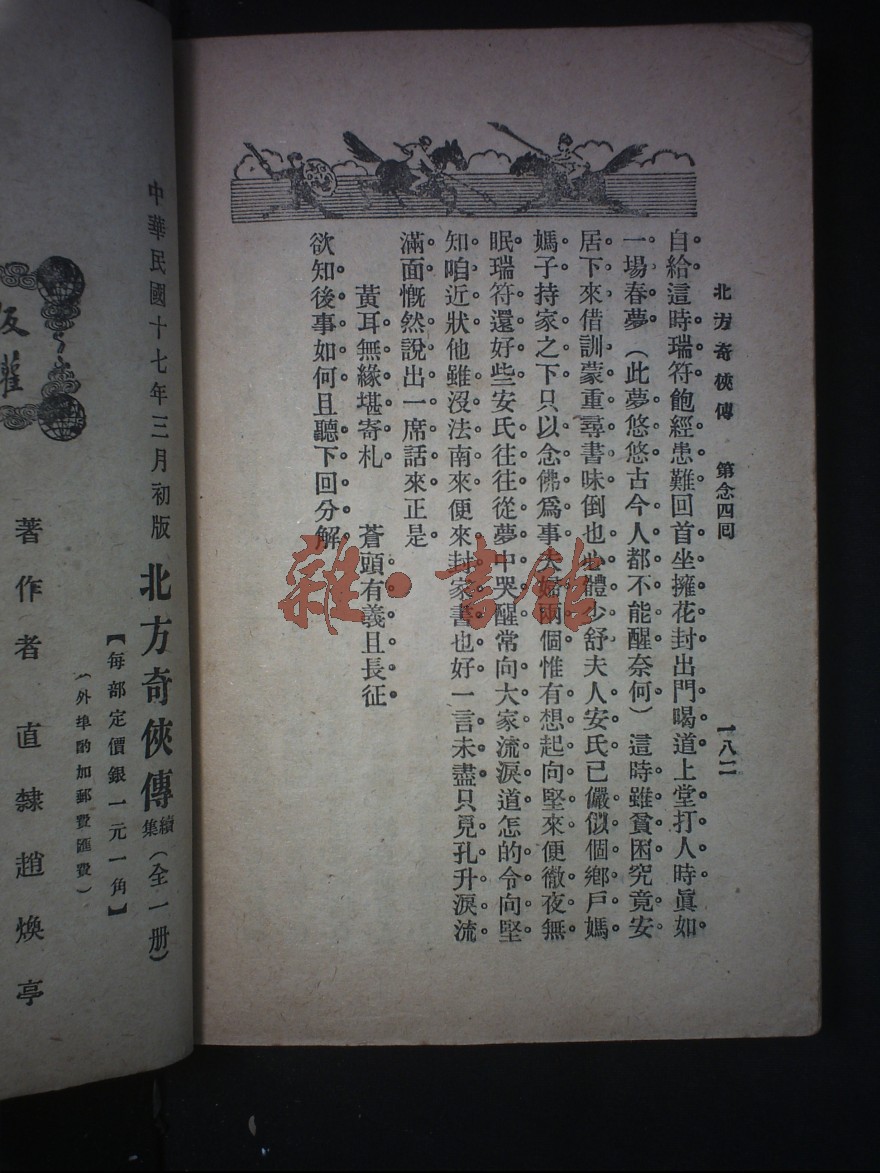 北方奇俠傳　第念四回　一八二
自給這時瑞符飽經患難回首坐擁花封出門喝道上堂打人時眞如
一場春夢（此夢悠悠古今人都不能醒奈何）這時雖貧困究竟安
居下來借訓蒙重尋書味倒也心體少舒夫人安氏已儼似個鄉戶媽
媽子持家之下只以念佛爲事夫婦兩個惟有想起向堅來便徹夜無
眠瑞符還好些安氏往往從夢中哭醒常向大家流淚道怎的令向堅
知咱近狀他雖沒法南來便來封家書也好一言未盡只見孔升淚流
滿面慨然說出一席話來正是
黃耳無緣堪寄札　蒼頭有義且長征
欲知後事如何且聽下回分解
雜·書館
中華民國十七年三月初版
北方奇俠傳續集（全一册）
【每部定價銀一元一角】
（外埠酌加郵費匯費）
著作者　直隸趙煥亭
版權